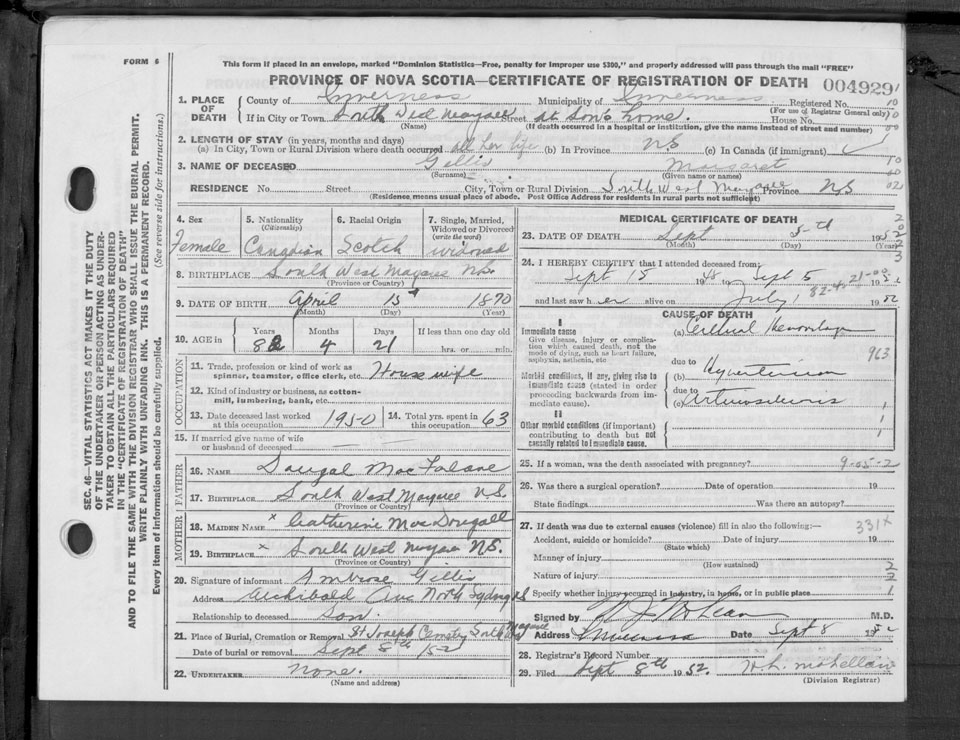 FORM 6
This form if placed in an envelope, marked "Dominion Statistics—Free, penalty for improper use $300," and properly addressed will pass through the mail "FREE"
PROVINCE OF NOVA SCOTIA—CERTIFICATE OF REGISTRATION OF DEATH 004929
SEC. 46—VITAL STATISTICS ACT MAKES IT THE DUTY
OF THE UNDERTAKER OR PERSON ACTING AS UNDER-
TAKER TO OBTAIN ALL THE PARTICULARS REQUIRED
IN THE "CERTIFICATE OF REGISTRATION OF DEATH"
AND TO FILE THE SAME WITH THE DIVISION REGISTRAR WHO SHALL ISSUE THE BURIAL PERMIT.
WRITE PLAINLY WITH UNFADING INK. THIS IS A PERMANENT RECORD.
Every item of Information should be carefully supplied. (See reverse side for instructions.)
1. PLACE OF DEATH
County of Inverness Municipality of Inverness Registered No.
(For use of Registrar General only)
If in City or Town South West Margaree Street at Son's home. House No.
(Name) (If death occurred in a hospital or institution, give the name instead of street and number)
2. LENGTH OF STAY (in years, months and days)
(a) In City, Town or Rural Division where death occurred all her life (b) In Province NS (c) In Canada (if immigrant)
3. NAME OF DECEASED Gillis Margaret
(Surname) (Given name or names)
RESIDENCE No. Street City, Town or Rural Division South West Margaree Province NS
(Residence means usual place of abode. Post Office Address for residents in rural parts not sufficient)
4. Sex Female
5. Nationality (Citizenship) Canadian
6. Racial Origin Scotch
7. Single, Married, Widowed or Divorced (write the word) widowed
8. BIRTHPLACE South West Margaree NS.
(Province or Country)
9. DATE OF BIRTH April 15 1870
(Month) (Day) (Year)
10. AGE in Years 82 Months 4 Days 21 If less than one day old
hrs. or min.
OCCUPATION
11. Trade, profession or kind of work as spinner, teamster, office clerk, etc. House wife
12. Kind of industry or business, as cotton-mill, lumbering, bank, etc.
13. Date deceased last worked at this occupation 1950
14. Total yrs. spent in this occupation 63
15. If married give name of wife or husband of deceased
FATHER
16. NAME Dougal MacFarlane
17. BIRTHPLACE South West Margaree N.S.
(Province or Country)
MOTHER
18. MAIDEN NAME x Catherine MacDougall
19. BIRTHPLACE x South West Margaree N.S.
(Province or Country)
20. Signature of informant Ambrose Gillis
Address Archibald Ave North Sydney NS
Relationship to deceased Son
21. Place of Burial, Cremation or Removal St Joseph Cemetery South West Margaree
Date of burial or removal Sept 8th /52
22. UNDERTAKER None.
(Name and address)
MEDICAL CERTIFICATE OF DEATH
23. DATE OF DEATH Sept 5th 1952
(Month) (Day) (Year)
24. I HEREBY CERTIFY that I attended deceased from:
Sept 15 1948 to Sept 5 1952
and last saw her alive on July 1 1952
82-4-21-00
CAUSE OF DEATH
I
Immediate cause
Give disease, injury or complication which caused death, not the mode of dying, such as heart failure, asphyxia, asthenia, etc
(a) Cerebral Hemorrhage
963
due to
Morbid conditions, if any, giving rise to immediate cause (stated in order proceeding backwards from immediate cause).
(b) Hypertension
due to
(c) Arteriosclerosis
II
Other morbid conditions (if important) contributing to death but not causally related to immediate cause.
25. If a woman, was the death associated with pregnancy? 9-05-2
26. Was there a surgical operation? Date of operation 19
State findings Was there an autopsy?
27. If death was due to external causes (violence) fill in also the following:—
331x
Accident, suicide or homicide? Date of injury 19
(State which)
Manner of injury
(How sustained)
Nature of injury
Specify whether injury occurred in industry, in home, or in public place
Signed by M.D.
Address Inverness Date Sept 8 1952
28. Registrar's Record Number
29. Filed Sept 8th 1952.
(Division Registrar)